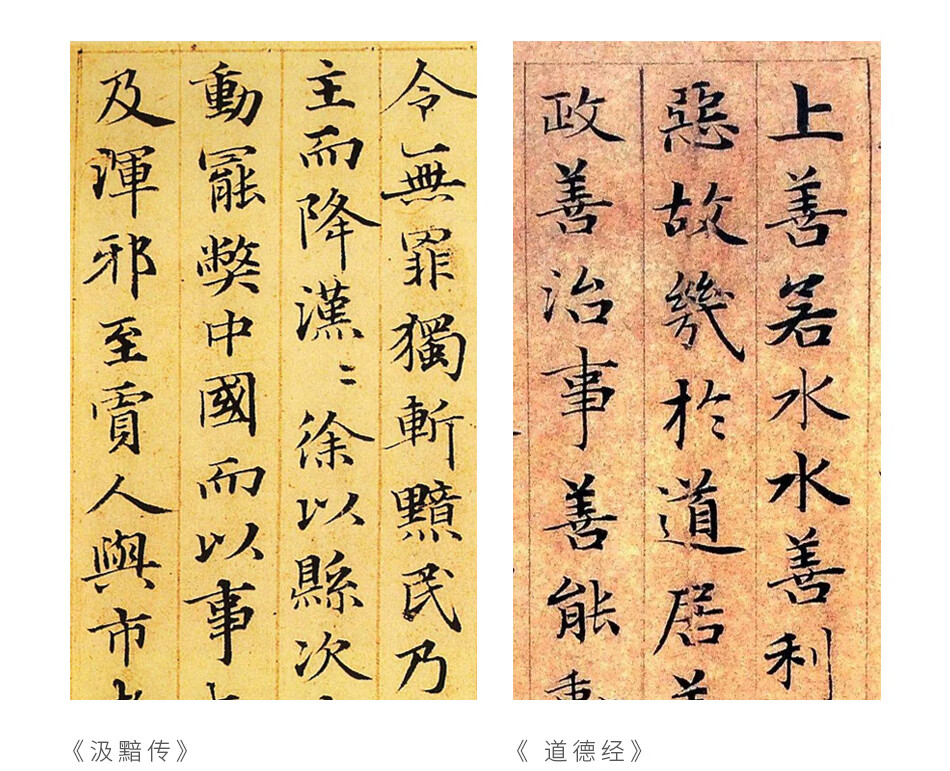 令無罪獨斬黯民乃
主而降漢〻徐以縣次
動罷弊中國而以事
及渾邪至賈人與市
上善若水水善利
惡故幾於道居
政善治事善能
《汲黯传》
《 道德经》